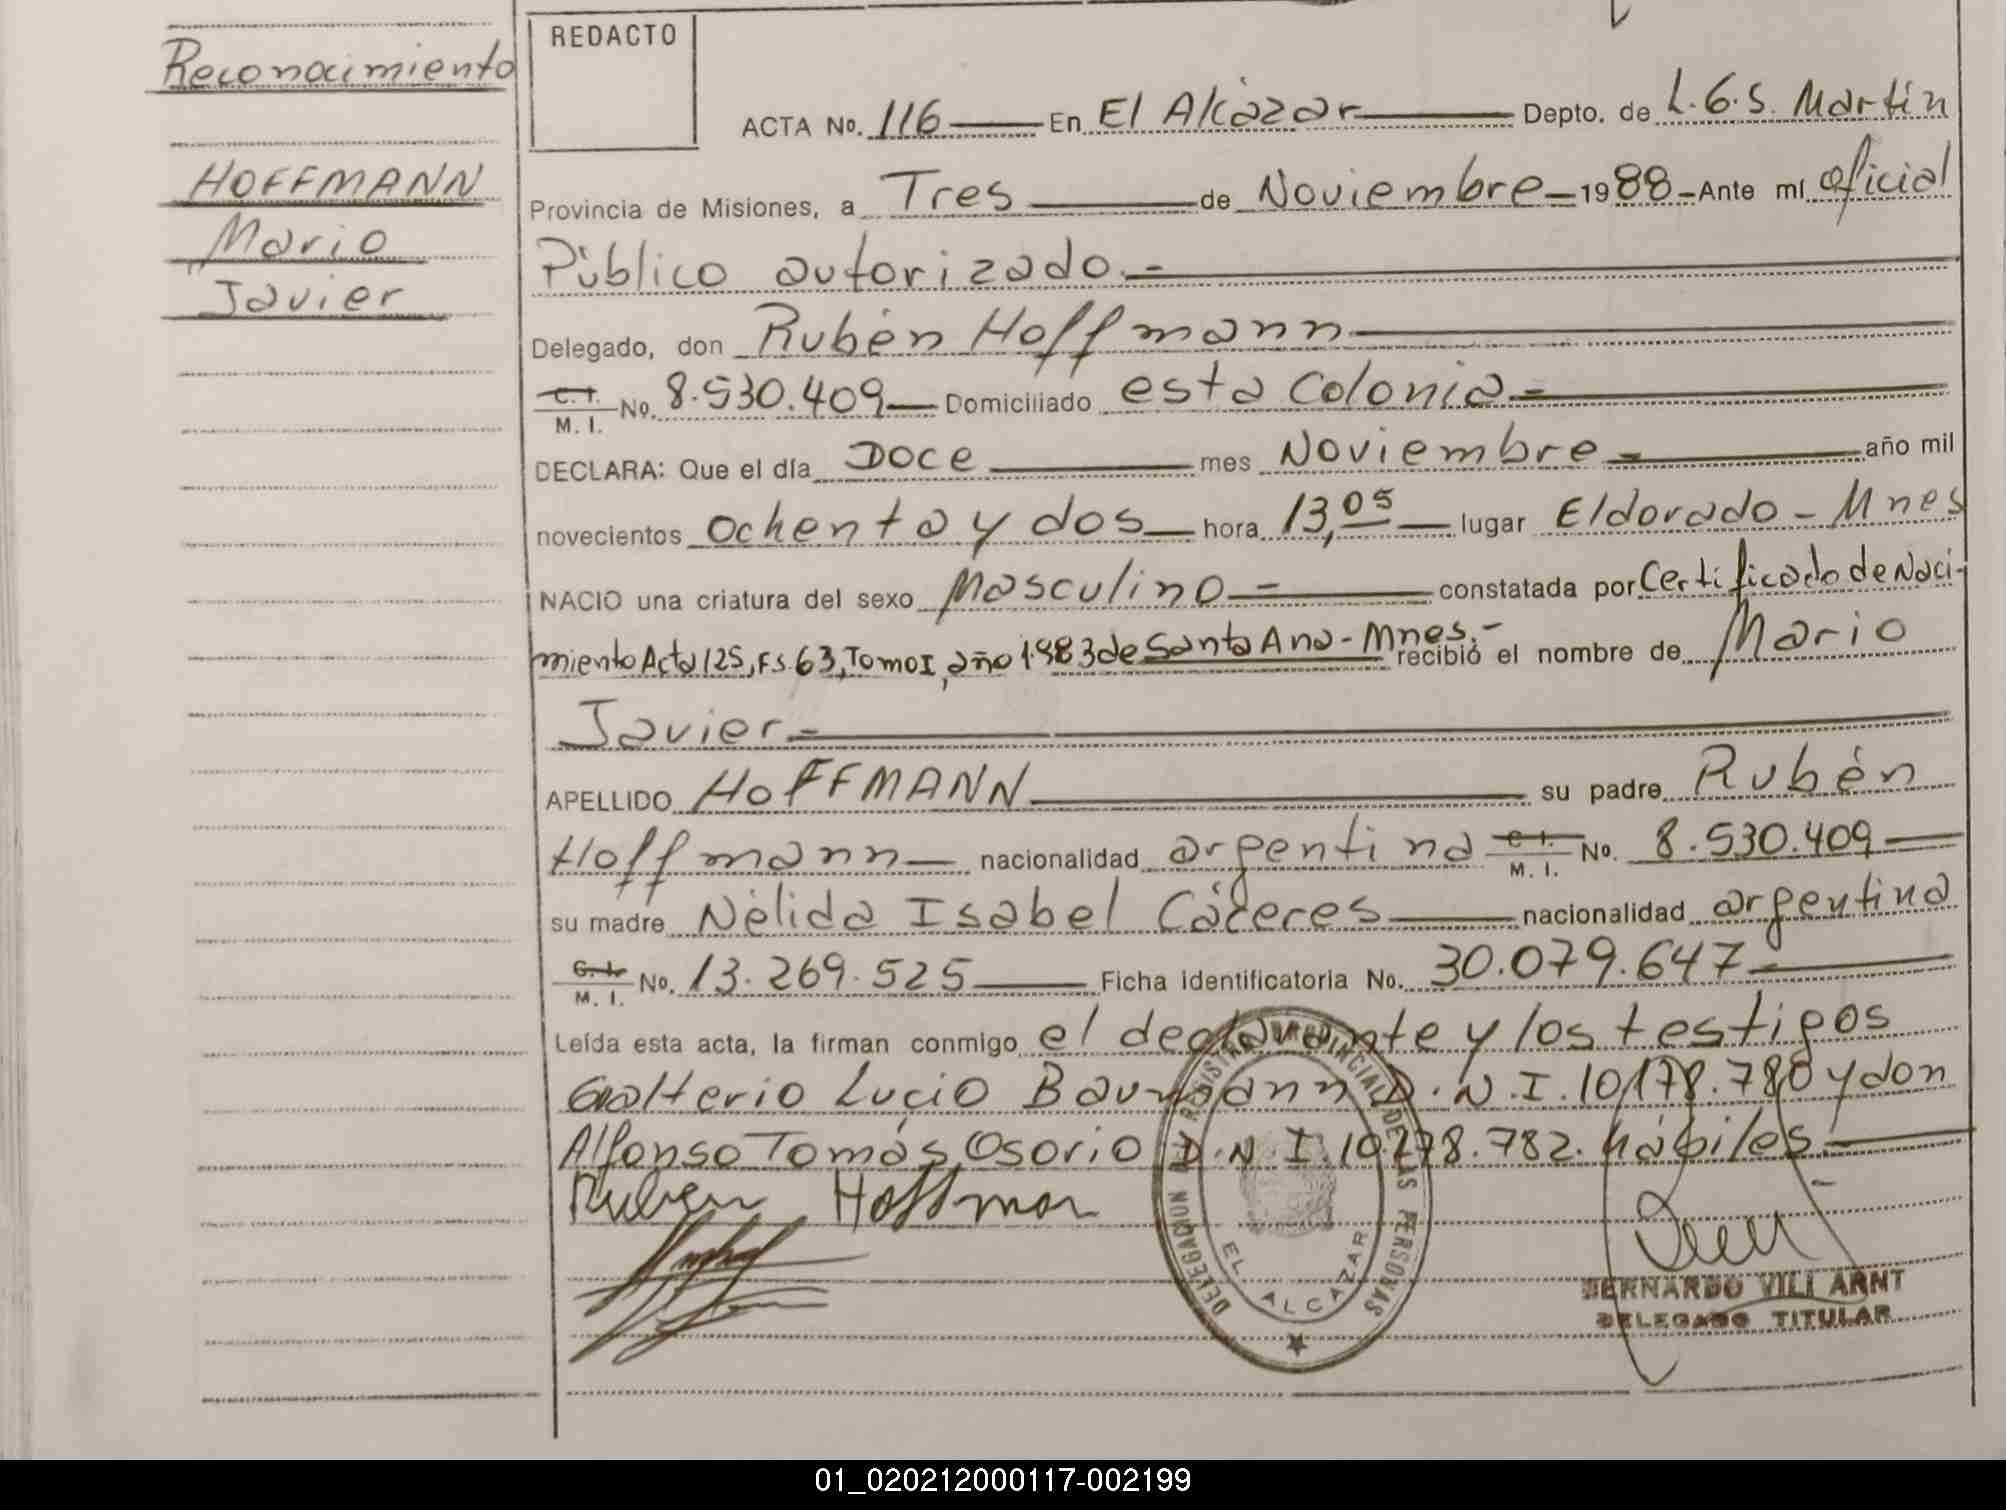 Reconocimiento
HOFFMANN
Mario
Javier
REDACTO
ACTA No. 116 En El Alcázar Depto. de L.G.S. Martín
Provincia de Misiones, a Tres de Noviembre 1988 - Ante mí oficial
Público autorizado.-
Delegado, don Rubén Hoffmann
C.I.
M. I. No. 8.530.409 Domiciliado esta Colonia.-
DECLARA: Que el día Doce mes Noviembre.- año mil
novecientos ochenta y dos hora 13,05 lugar Eldorado - Mnes
NACIO una criatura del sexo Masculino.- constatada por Certificado de Naci-
miento Acta 125, Fs. 63, Tomo I, año 1.983 de Santa Ana - Mnes.- recibió el nombre de Mario
Javier.-
APELLIDO HOFFMANN su padre Rubén
Hoffmann nacionalidad argentina C.I.
M. I. No. 8.530.409
su madre Nélida Isabel Cáceres nacionalidad argentina
C.I.
M. I. No. 13.269.525 Ficha identificatoria No. 30.079.647.-
Leída esta acta, la firman conmigo el declarante y los testigos
Gualterio Lucio Baumann D.N.I. 10.178.780 y don
Alfonso Tomás Osorio D.N.I. 10.278.782. hábiles.-
Ruben Hoffman
DELEGACION REGISTRO PROVINCIAL DE LAS PERSONAS
EL ALCAZAR
BERNARDO VILLARNT
DELEGADO TITULAR
01_020212000117-002199